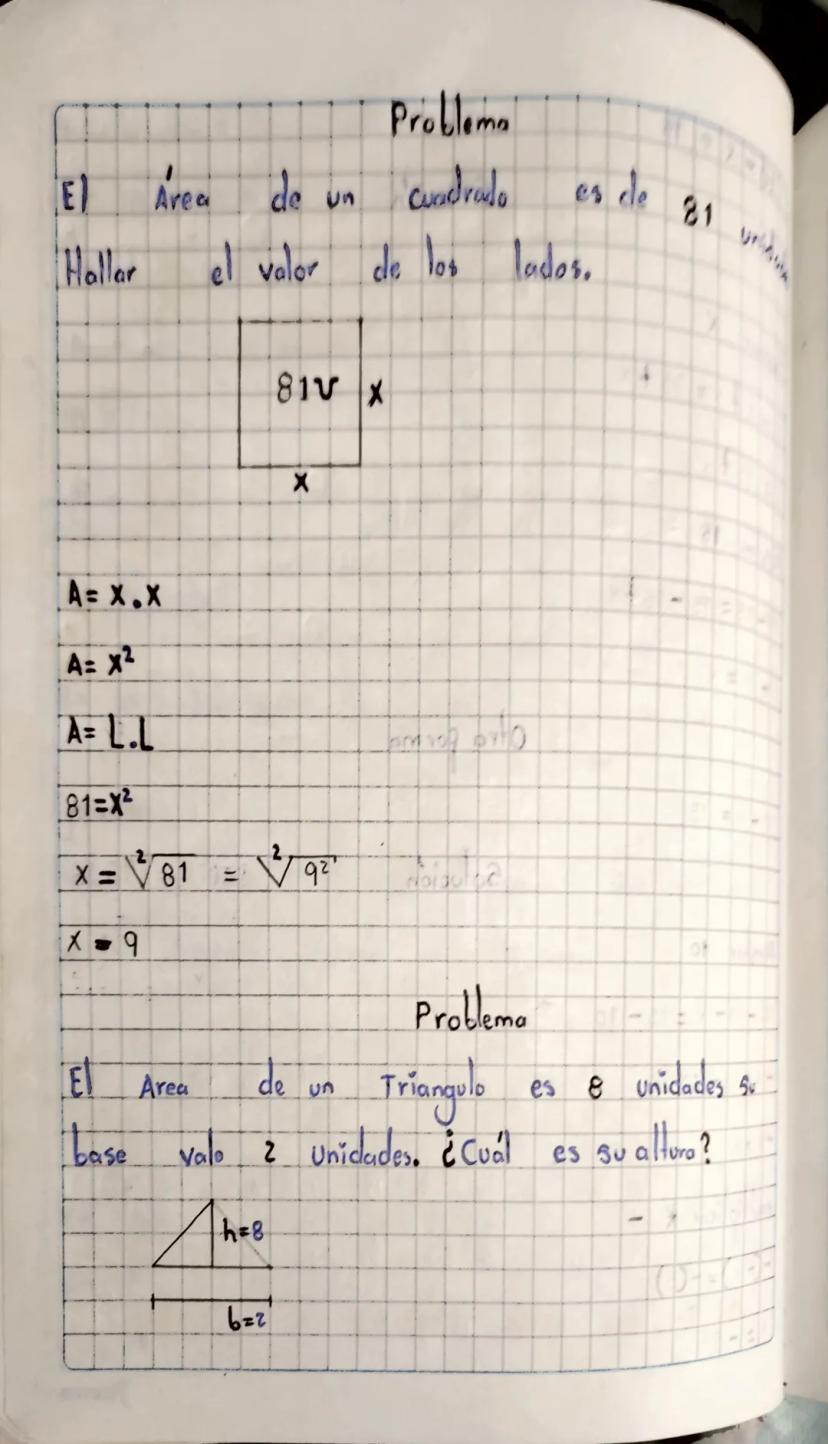 Problema
El Área de un cuadrado es de 81 unidades
Hallar el valor de los lados.
81v x
x
A= x.x
A= x²
A= L.L
81=x²
x = ²√81 = ²√9²
x = 9
Problema
El Area de un Triangulo es 8 unidades su
base vale 2 unidades. ¿Cuál es su altura?
h=8
b=2